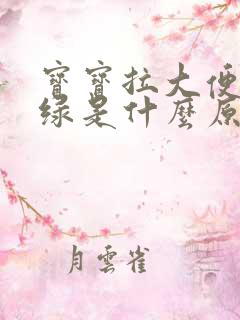 寶寶拉大便
綠是什麼原
月雲雀